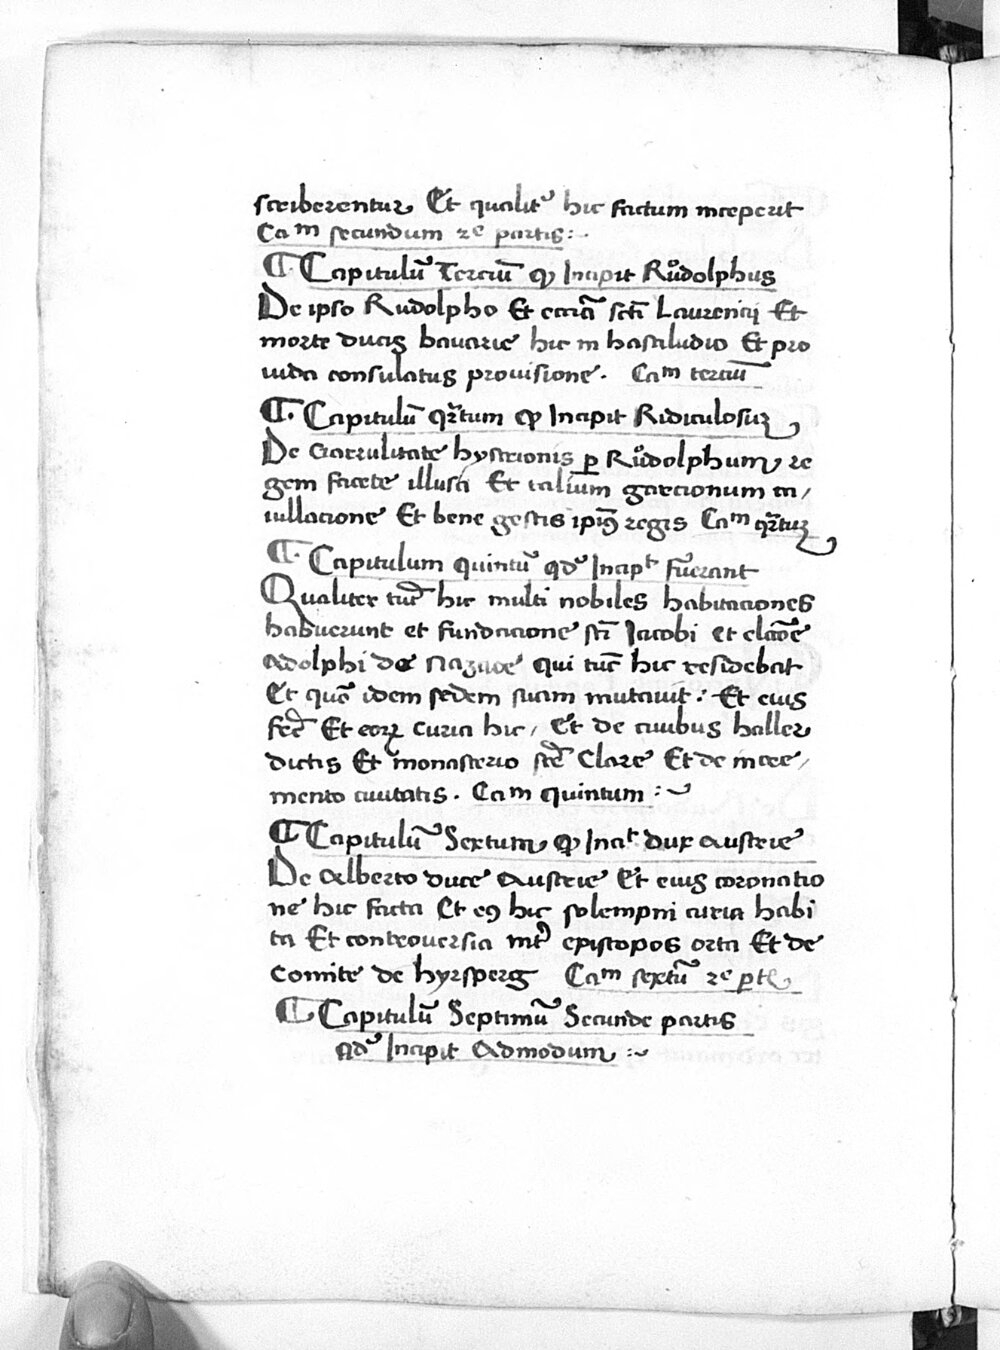 scriberentur Et qualit᷒ hic factum inceperit
Cam secundum 2e partis :~
¶ Capitulū Terciū qḍ Incipit Růdolphus
De ipso Rudolpho Et ecciā scti Laurencij Et
morte ducis bavarie hic in hastiludio Et pro
uida consulatus prouisione. Cam terciū
¶ Capitulū qrtum qḍ Incipit Ridiculosuʒ
De Garrulitate hystrionis ꝑ Růdolphum re
gem facete illusa Et talium garcionum ca /
uillacione Et bene gestis ipiꝰ regis Cam qrtuʒ
¶ Capitulum quintū qd᷒ Incipt fuerant
Qualiter tūc hic multi nobiles habitaciones
habuerunt et fundacione sti Jacobi et elcōe
Adolphi de Nazawe qui tūc hic residebat
Et quō idem sedem suam mutauit : Et eius
fcē Et eoꝝ curia hic / Et de ciuibus haller
dictis Et monasterio stē Clare Et de incre /
mento ciuitatis . Cam quintum :~
¶ Capitulū Sextum qḍ Incit dux austrie
De Alberto duce Austrie Et eius coronatio
ne hic facta Et eꝰ hic solempni curia habi
ta Et controuersia int᷒ episcopos orta Et de
Comite de hyrsperg Cam sextū 2e ptis
¶ Capitulū Septimū Secunde partis
qd᷒ Incipit Admodum :~